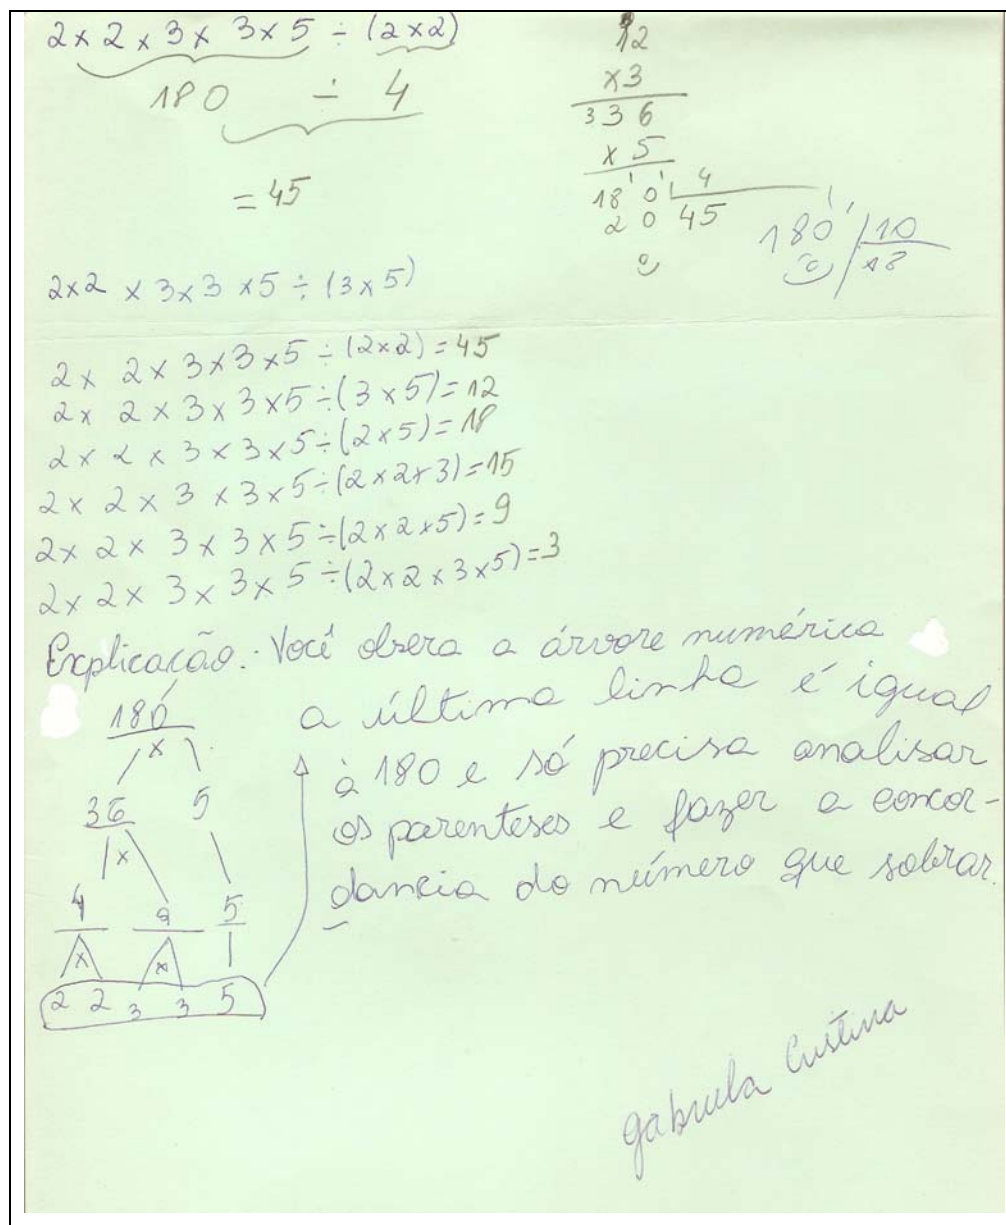 2 x 2 x 3 x 3 x 5 ÷ (2 x 2)
180 ÷ 4
= 45
12
x3
336
x 5
18 0 4
2 0 45
0
180 10
0 18
2x2 x 3x3 x5 ÷ (3 x 5)
2 x 2 x 3 x 3 x 5 ÷ (2 x 2) = 45
2 x 2 x 3 x 3 x 5 ÷ (3 x 5) = 12
2 x 2 x 3 x 3 x 5 ÷ (2 x 5) = 18
2 x 2 x 3 x 3 x 5 ÷ (2 x 2 x 3) = 15
2 x 2 x 3 x 3 x 5 ÷ (2 x 2 x 5) = 9
2 x 2 x 3 x 3 x 5 ÷ (2 x 2 x 3 x 5) = 3
Explicação: Você obsera a árvore numérica
a última linha é igual
à 180 e só precisa analisar
os parenteses e fazer a concor-
dancia do número que sobrar.
180
x
36 5
x
4 9 5
x x
2 2 3 3 5
gabriela Cristina